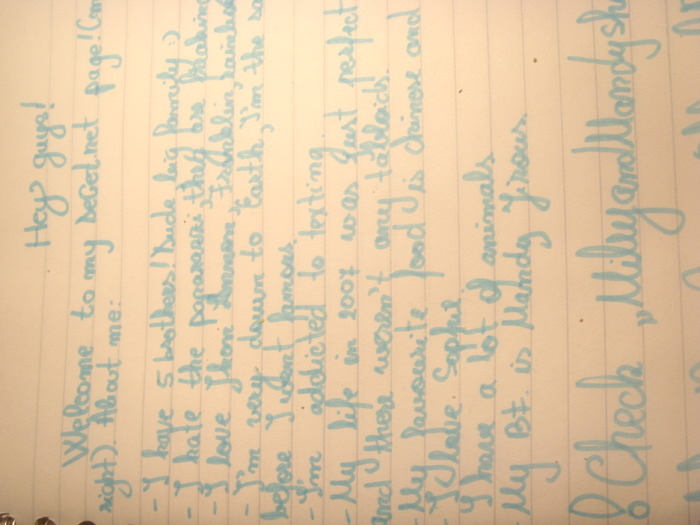 Hey guys!
Welcome to my seGet.net page! (
right). About me:
- I have 5 brothers! Dude big family :)
- I hate the paparazzi, they are
- I love Jhon Lennon, Franklin,
- I'm very down to Earth, I'm the sa
before I went famous.
- I'm addicted to texting
- My life in 2007 was just perfect
and there weren't any tabloids.
- My favourite food is chinese and
- I love Sophie
I have a lot of animals
My BF is Mandy Jirous.
! Check „MileyandMandysh